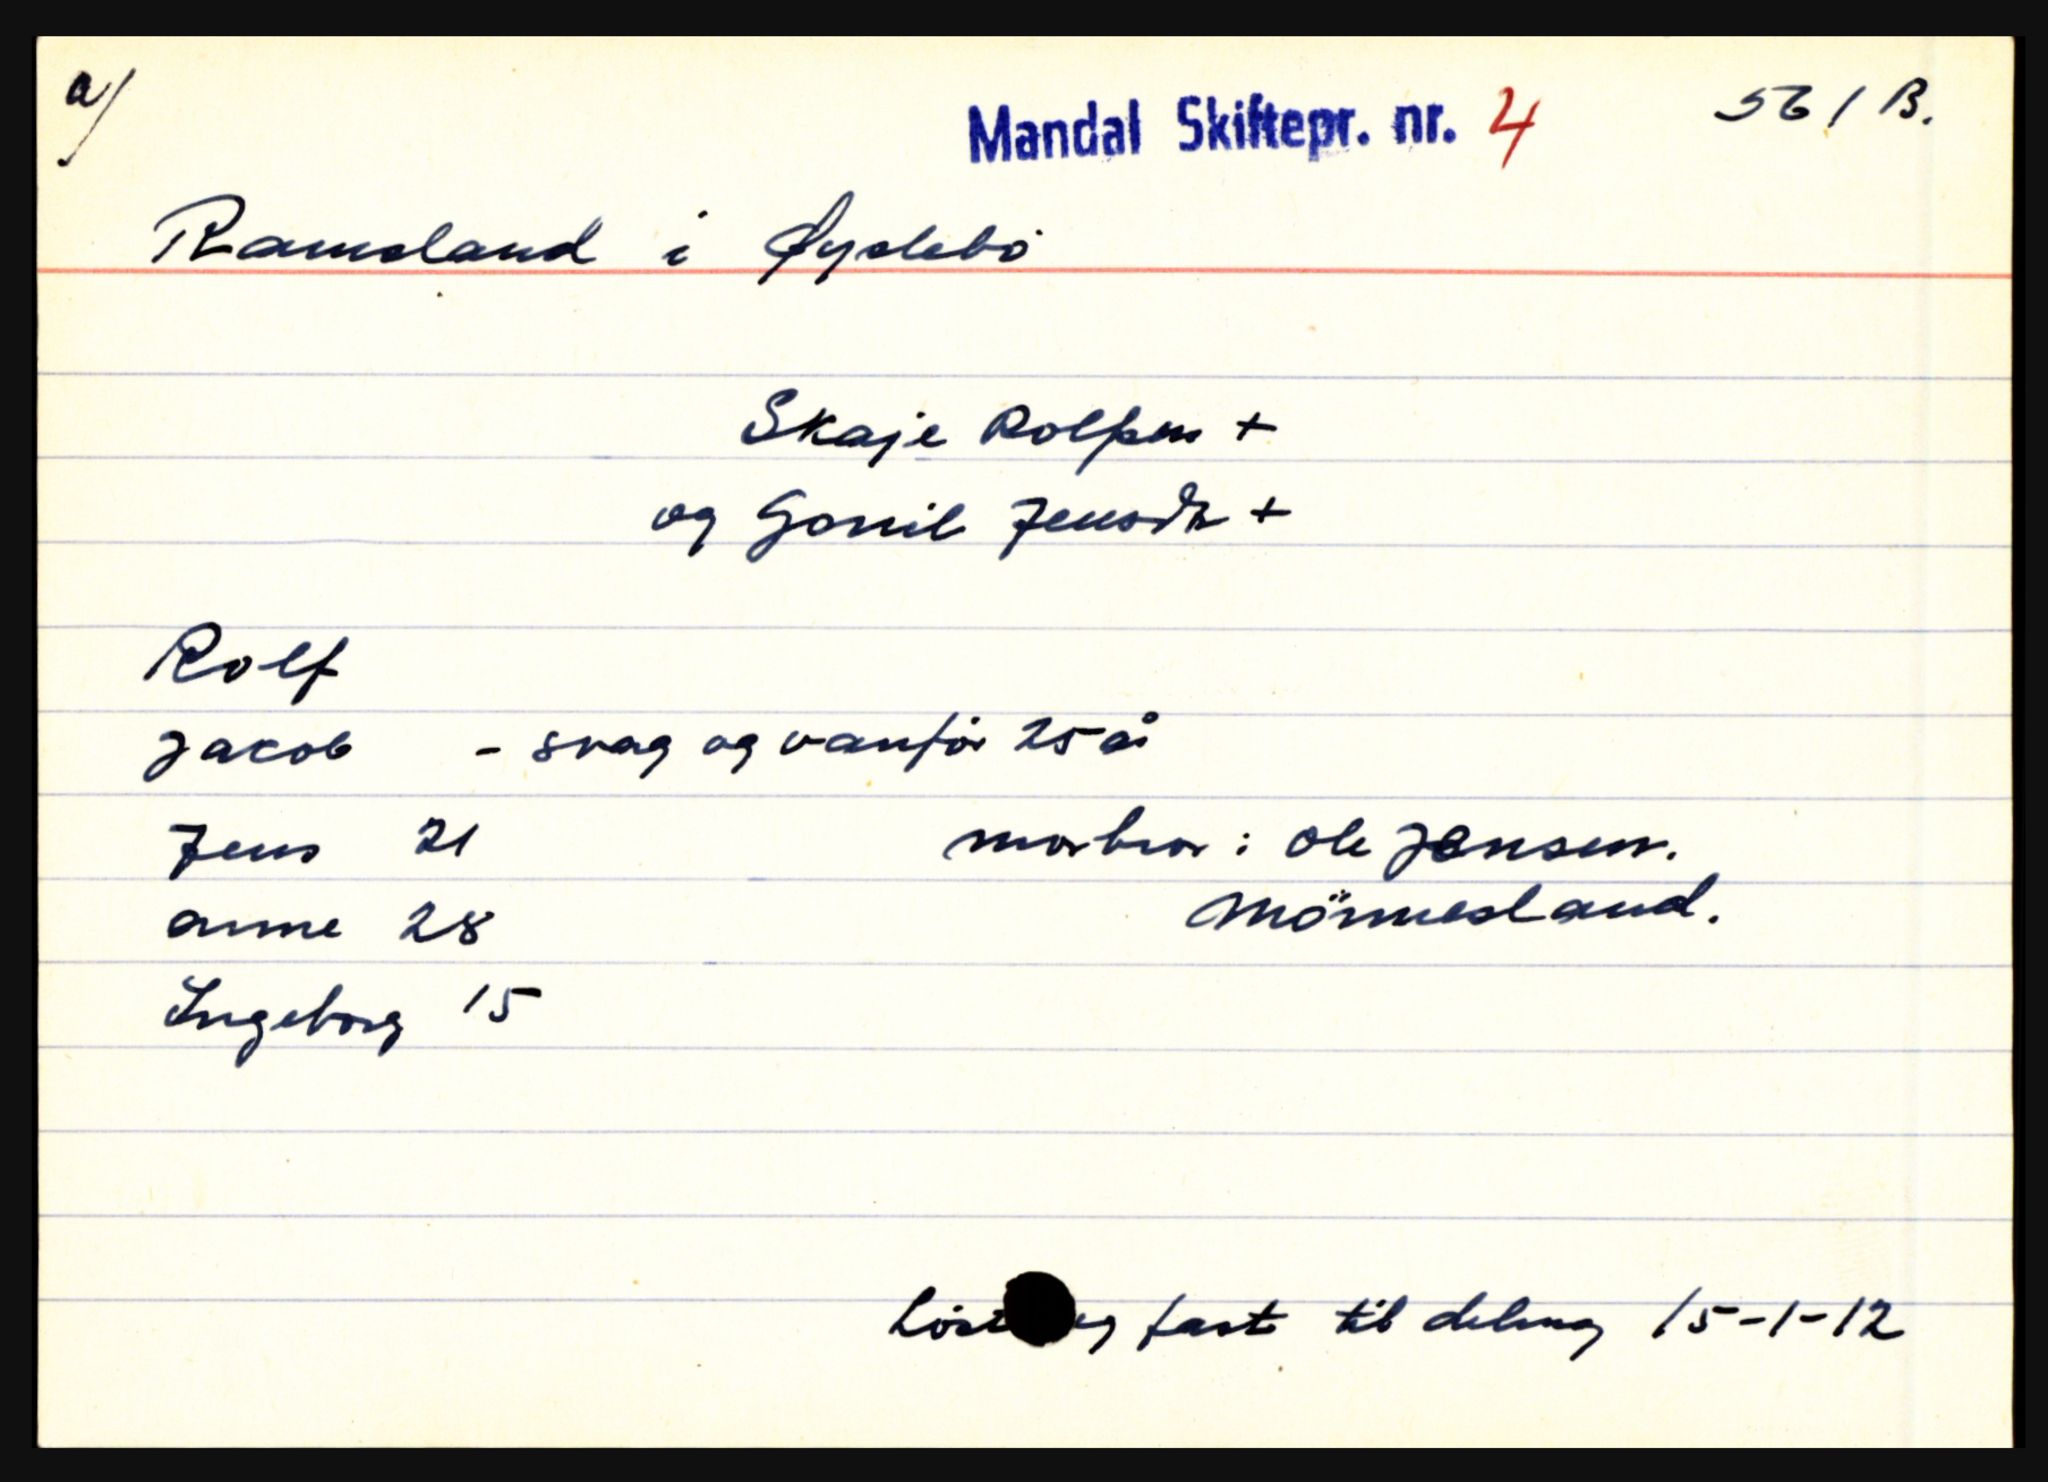 a/
Mandal Skiftepr. nr. 4 561 B.
Ramsland i Øyslebö
Skaje Rolfsen +
og Gonil Jensdtr +
Rolf
Jacob - svag og vanför 25 år
Jens 21 morbror: Ole Jensen.
Anne 28 Mönnesland.
Ingeborg 15
Löst og fast til deling 15-1-12